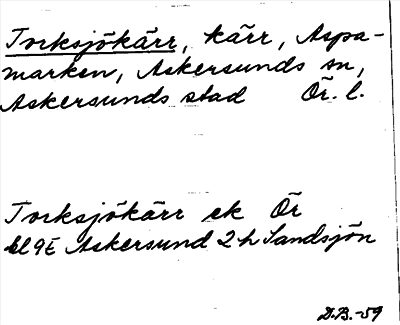 Torksjökärr, kärr, Aspa-
marken, Askersunds sn,
Askersunds stad Ör. l.
Torksjökärr ek Ör
bl 9E Askersund 2h Sandsjön
D.B.-59